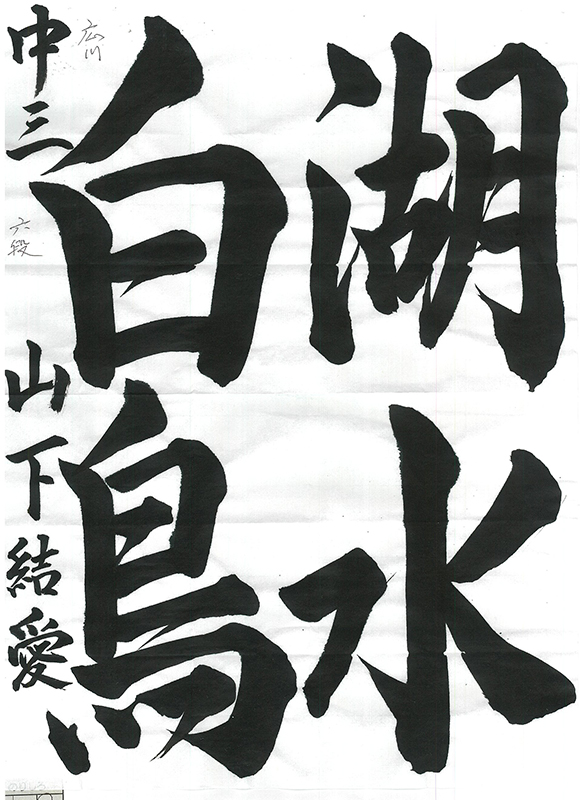 湖水
白鳥
中三 山下結愛
広川
六段